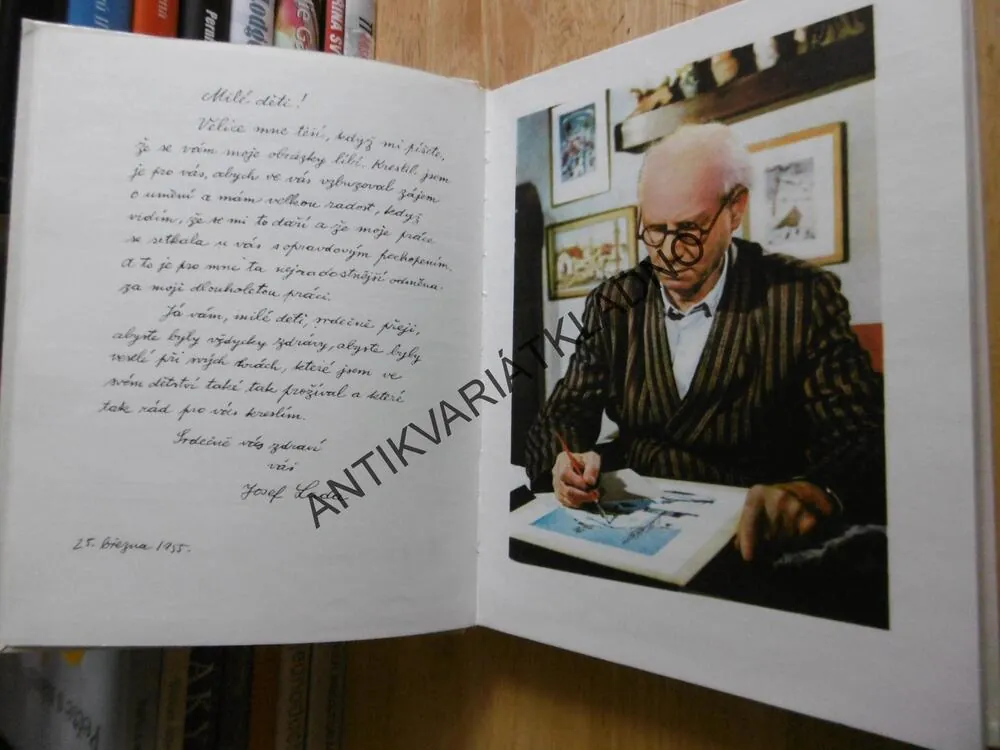 Milé děti!
Velice mne těší, když mi píšete,
že se vám moje obrázky líbí. Kreslil jsem
je pro vás, abych ve vás vzbuzoval zájem
o umění a mám velkou radost, když
vidím, že se mi to daří a že moje práce
se setkala u vás s opravdovým pochopením.
A to je pro mne ta nejradostnější odměna
za moji dlouholetou práci.
Já vám, milé děti, srdečně přeji,
abyste byly vždycky zdrávy, abyste byly
veselé při svých hrách, které jsem ve
svém dětství také tak prožíval a které
tak rád pro vás kreslím.
Srdečně vás zdraví
váš
Josef Lada
25. března 1955.
ANTIKVARIÁTKLADNO